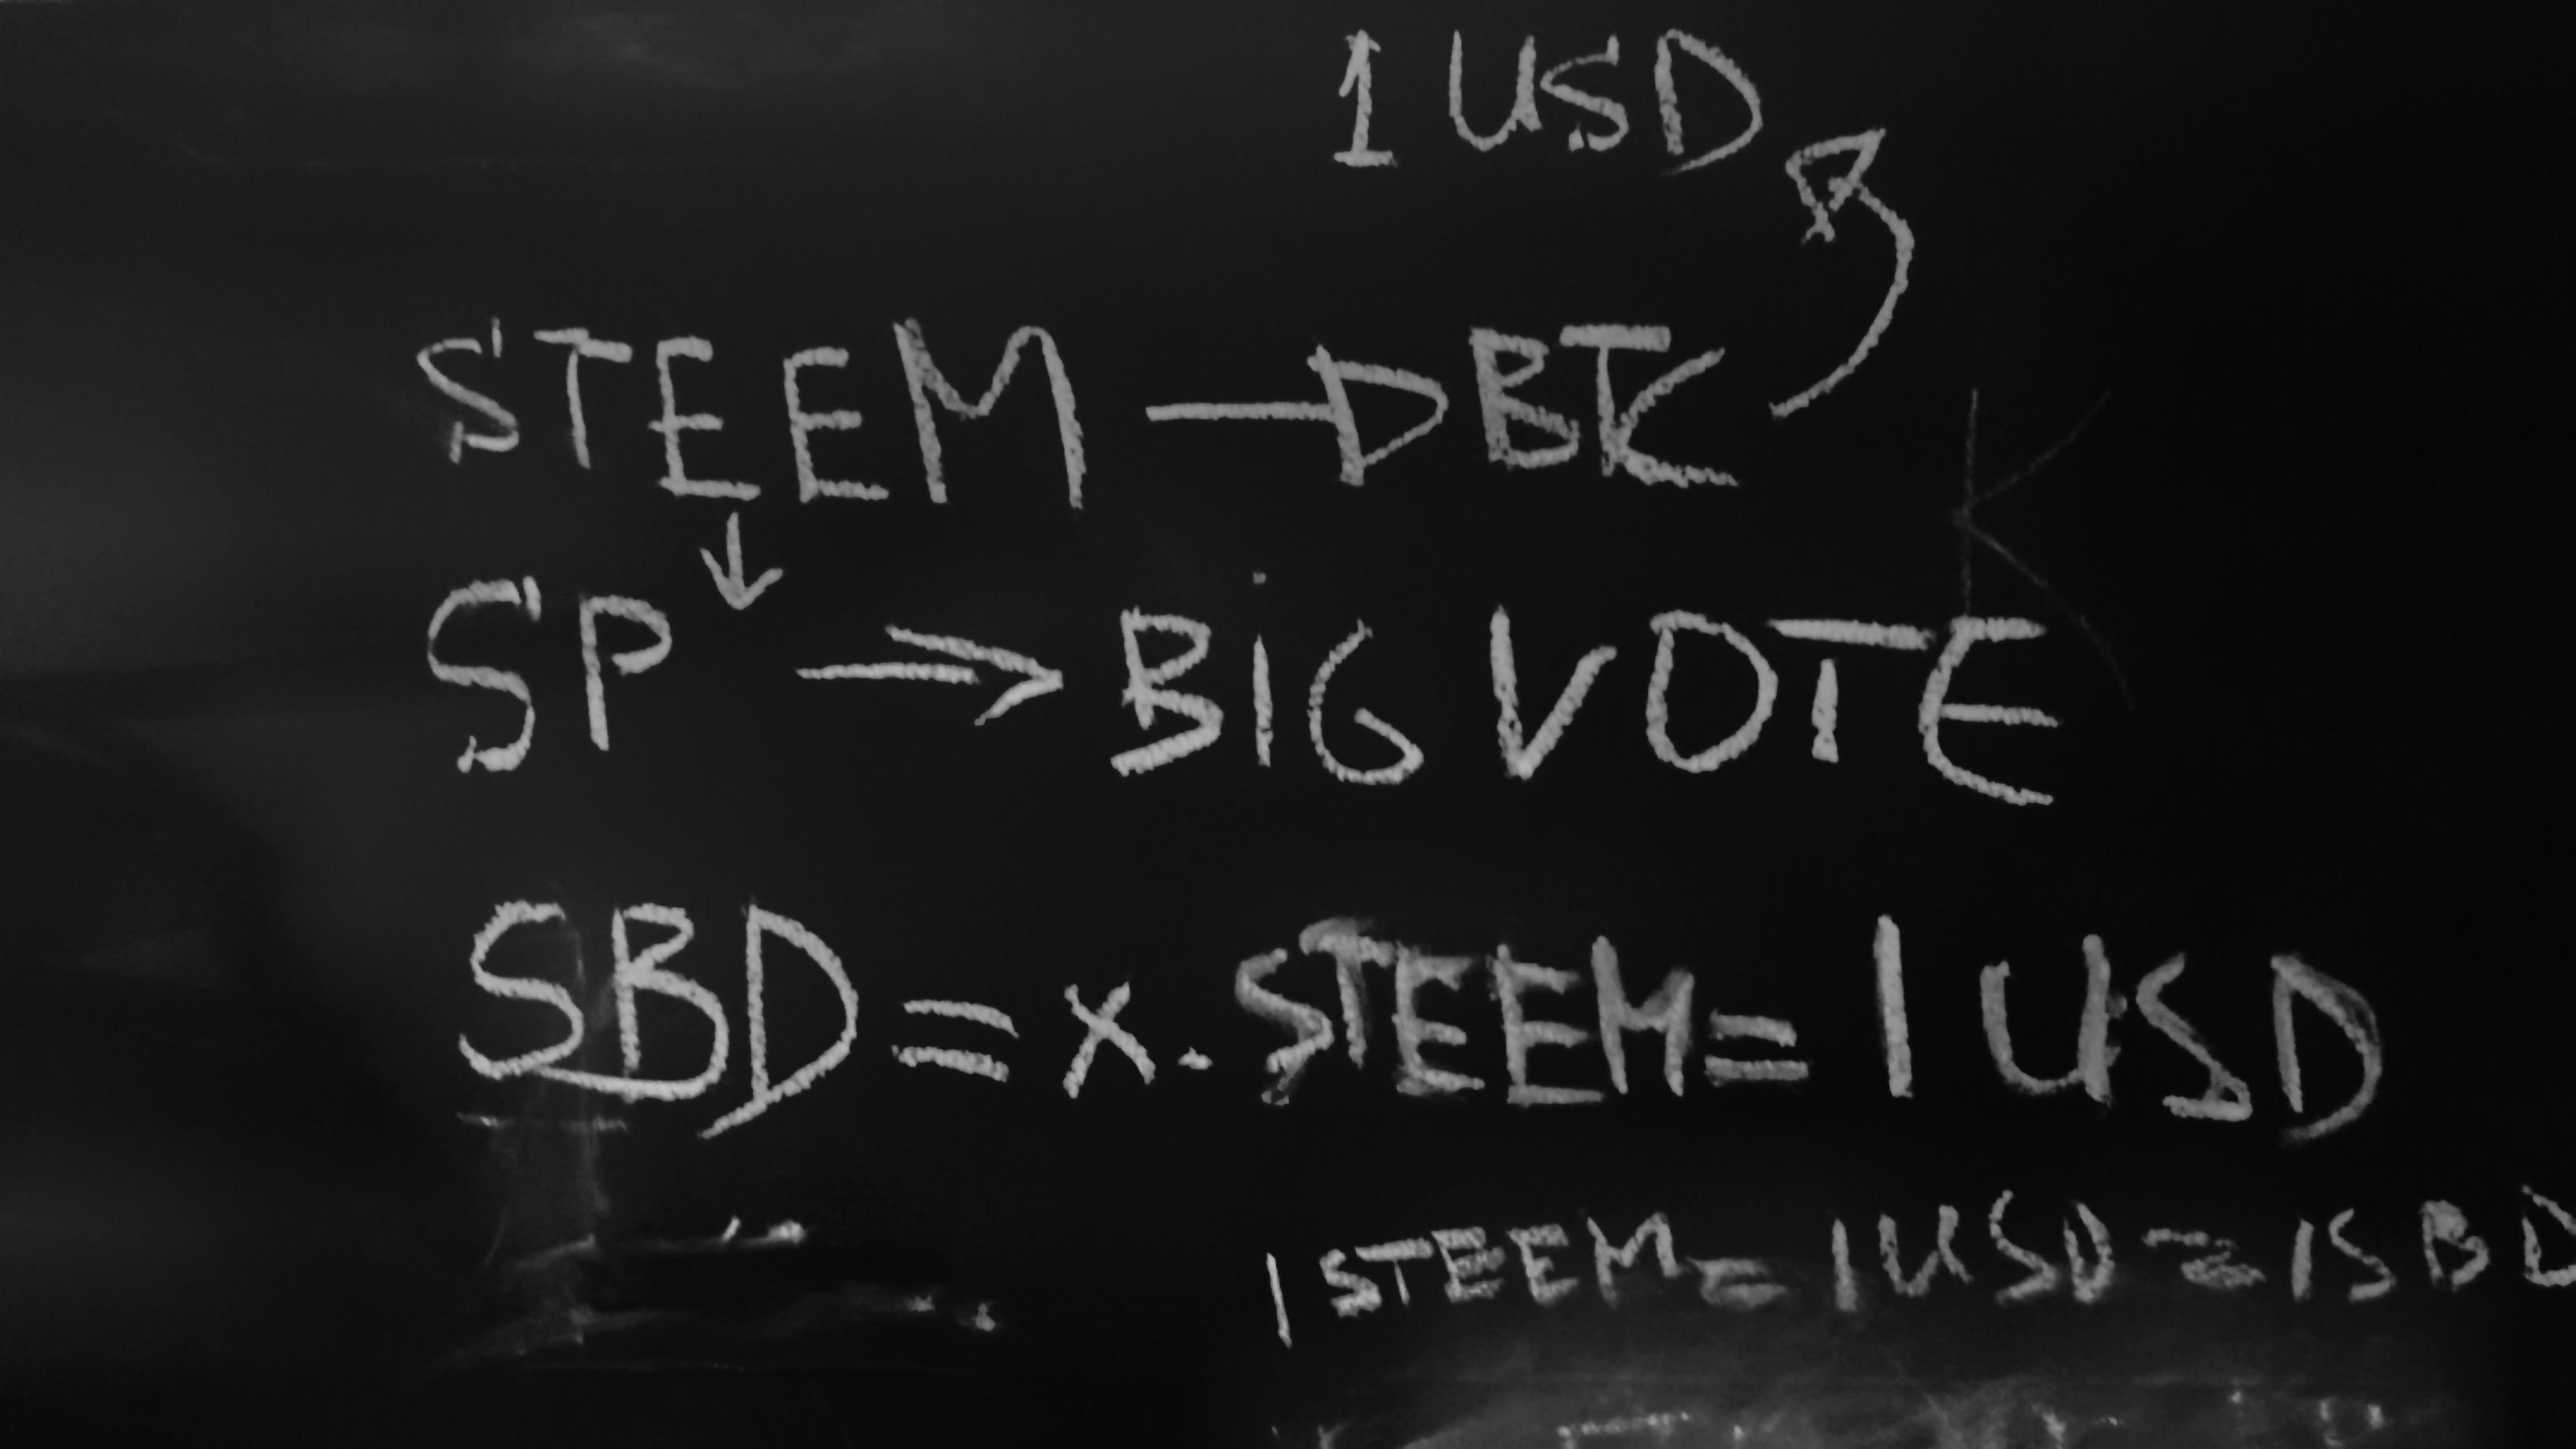 1 USD
STEEM → BTC
↓
SP → BIG VOTE
K
SBD = x. STEEM = 1 USD
1 STEEM = 1 USD = 1 SBD